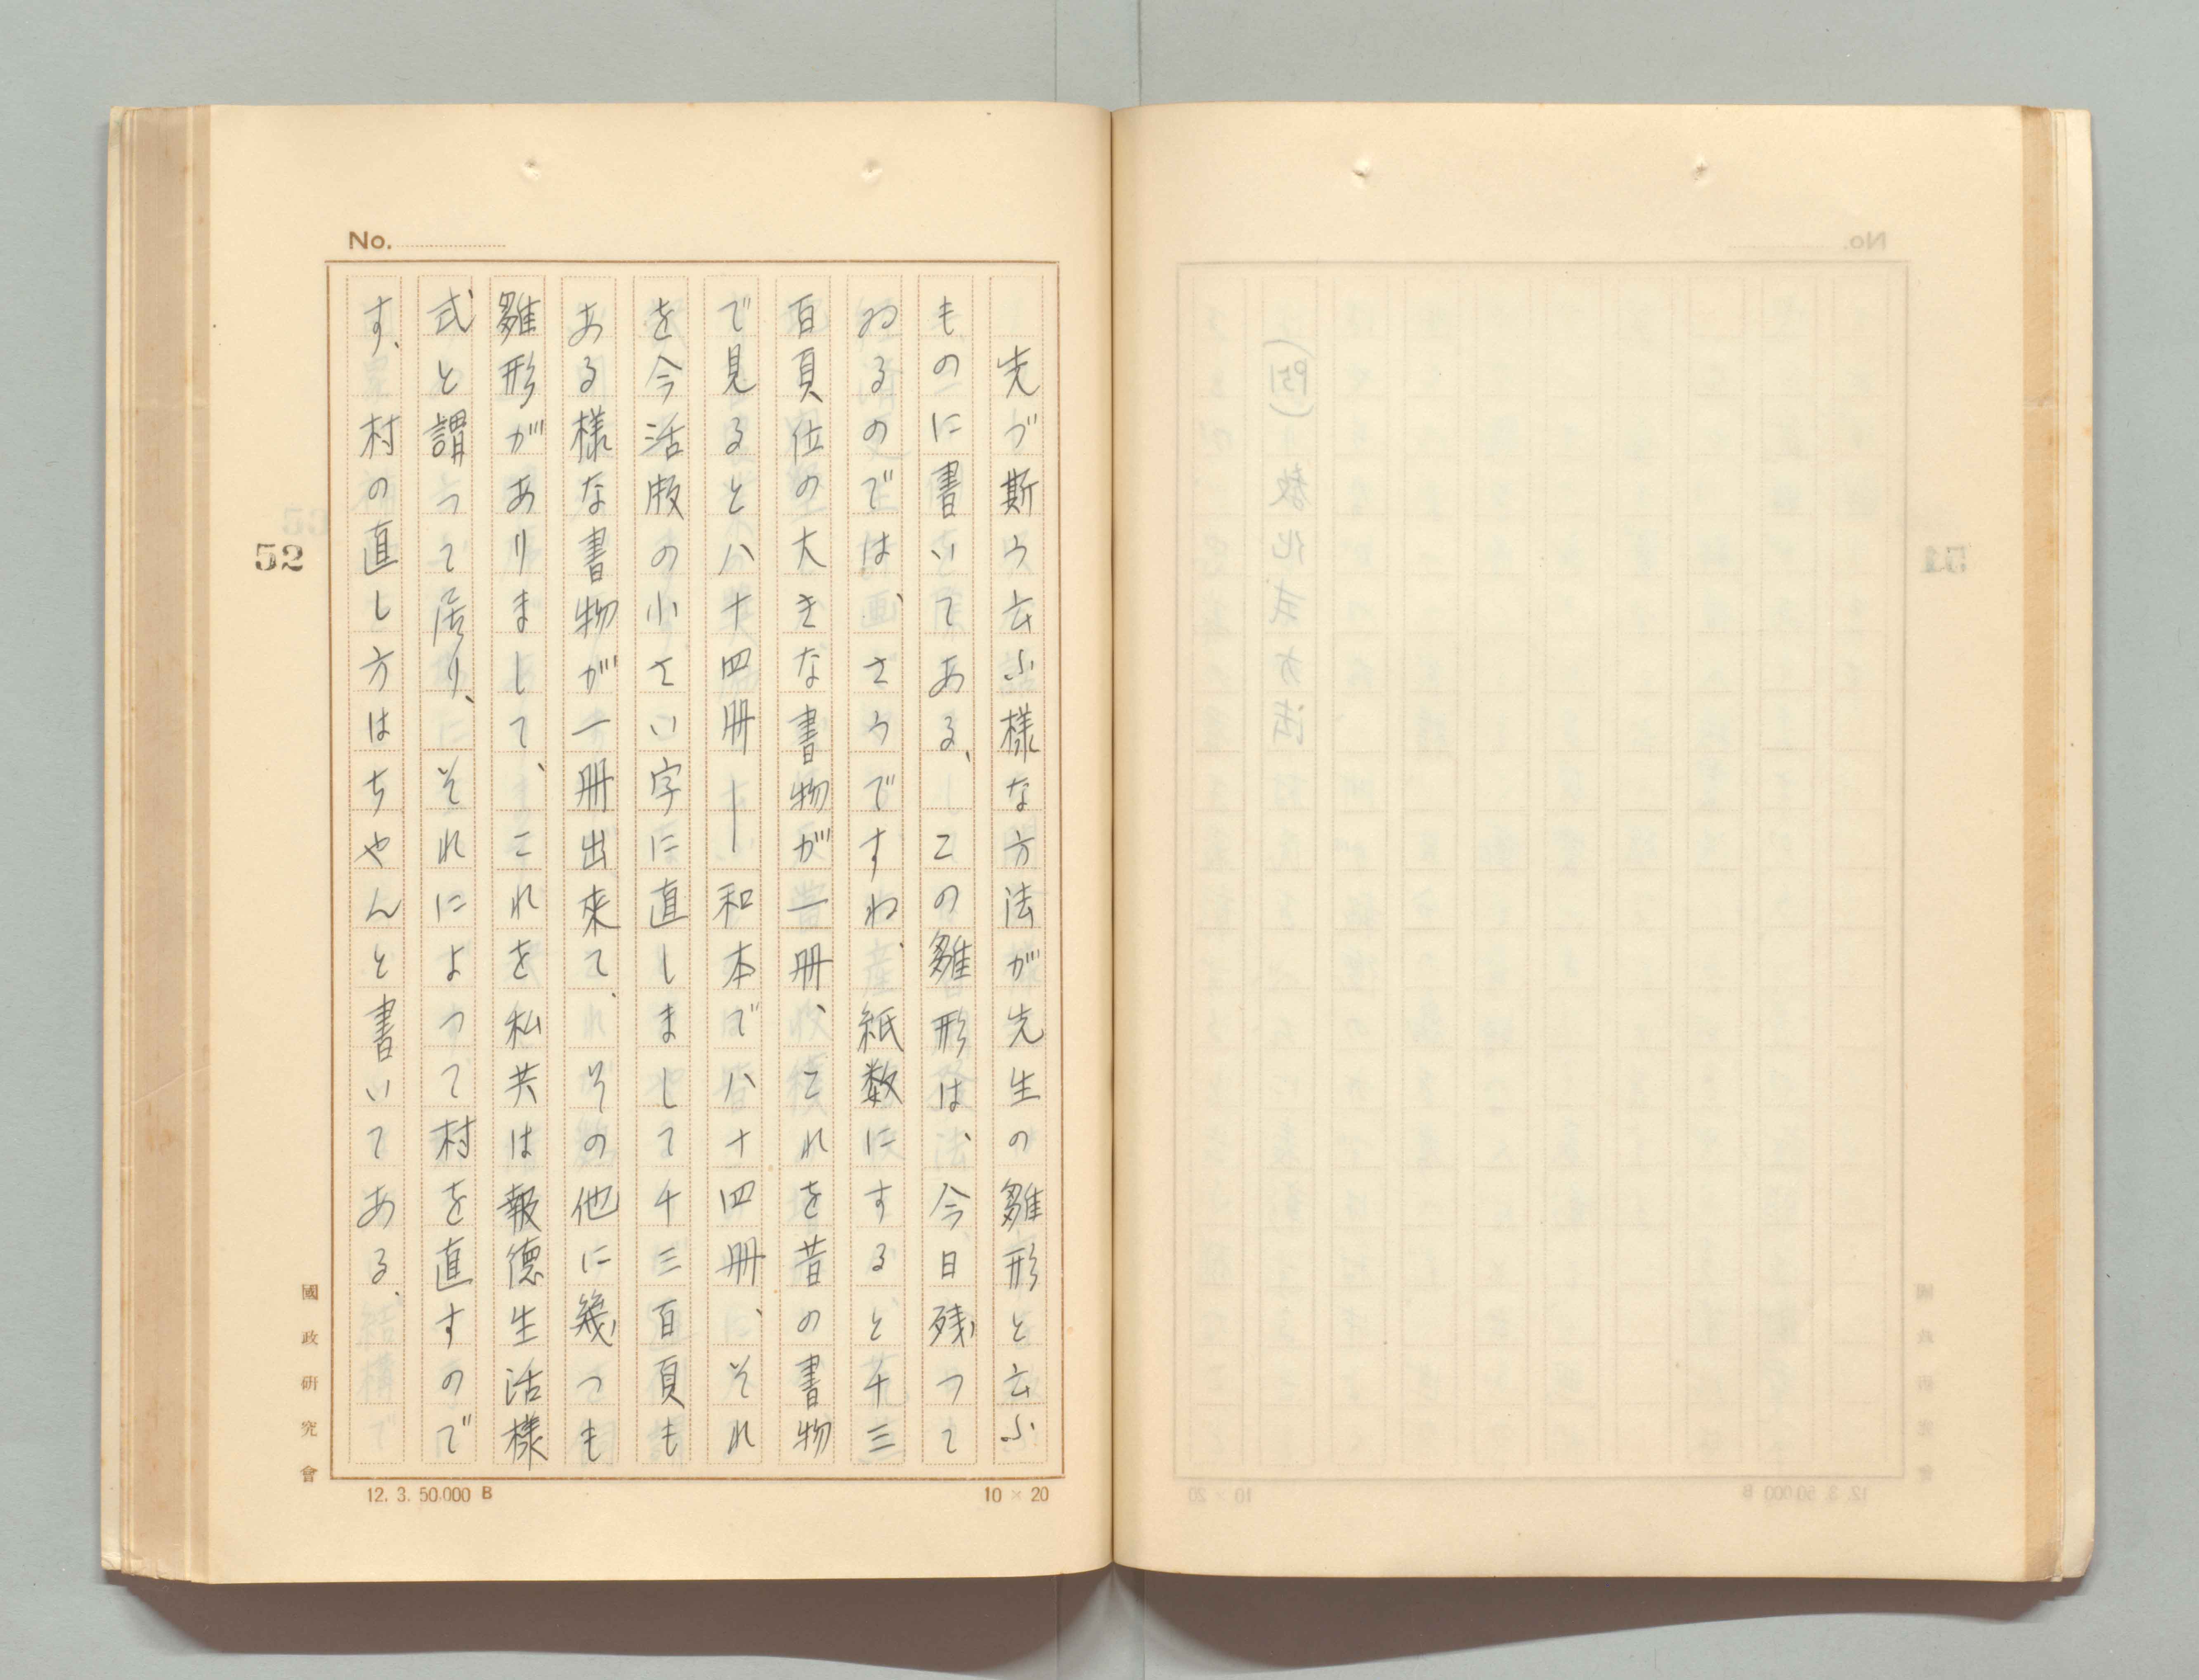 No.
先づ斯う云ふ様な方法が先生の雛形と云ふ
ものに書いてある、この雛形は、今日残つて
ゐるのでは、さうですね、紙数にすると千三
百頁位の大きな書物が一冊、これを昔の書物
で見ると八十四冊―和本で八十四冊、それ
を今活版の小さい字に直しまして千三百頁も
ある様な書物が一冊出来て、その他に幾つも
雛形がありまして、これを私共は報徳生活様
式と謂つて居り、それによつて村を直すので
す、村の直し方はちやんと書いてある、
52
國政研究會
12. 3. 50.000 B
10 × 20